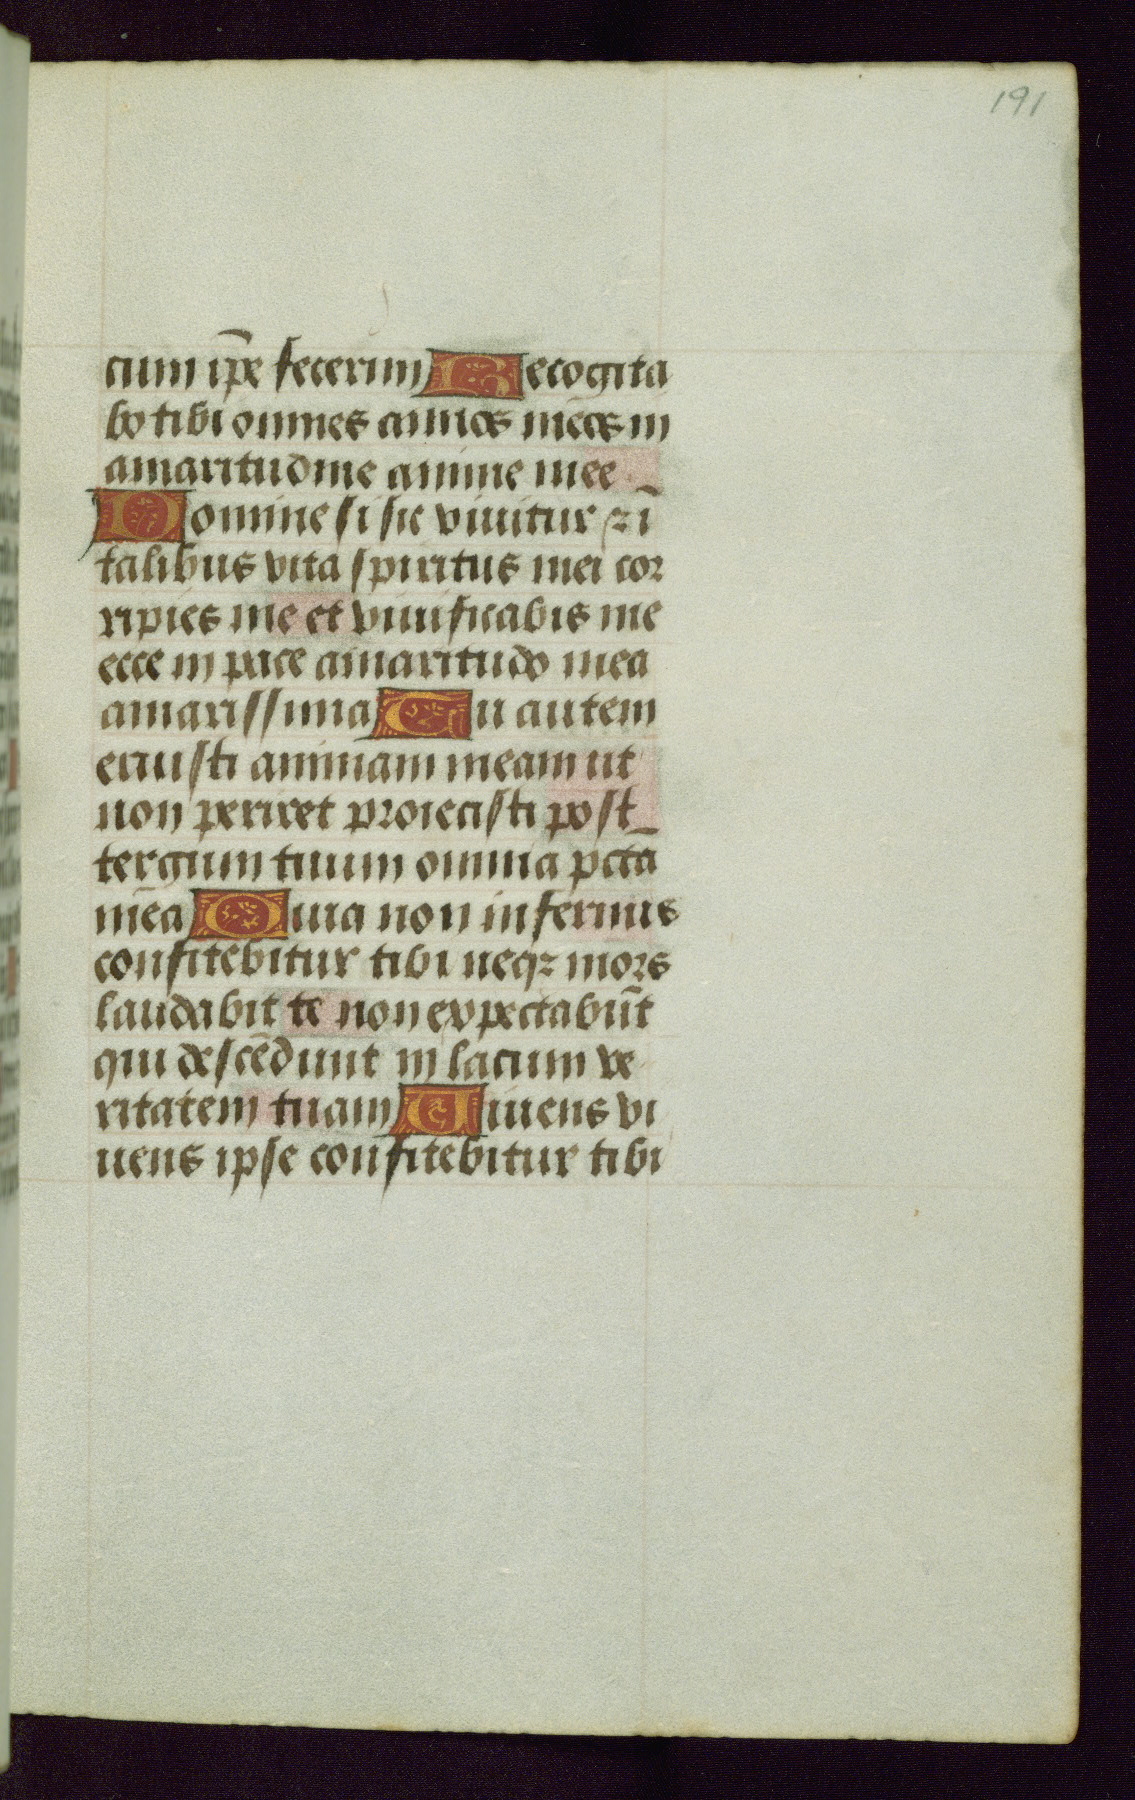 191
cum ip̄e fecerim Recogita
bo tibi omnes annos meos in
amaritudine anime mee
Domine si sic viuitur ⁊ ī
talibus vita spiritus mei cor
ripies me et viuificabis me
ecce in pace amaritudo mea
amarissima Tu autem
eruisti animam meam ut
non periret proiecisti post
tergum tuum omnia pctā
mea Quia non infernus
confitebitur tibi neqꝫ mors
laudabit te non expectabūt
qui descēdunt in lacum ve
ritatem tuam Uiuens vi
uens ipse confitebitur tibi